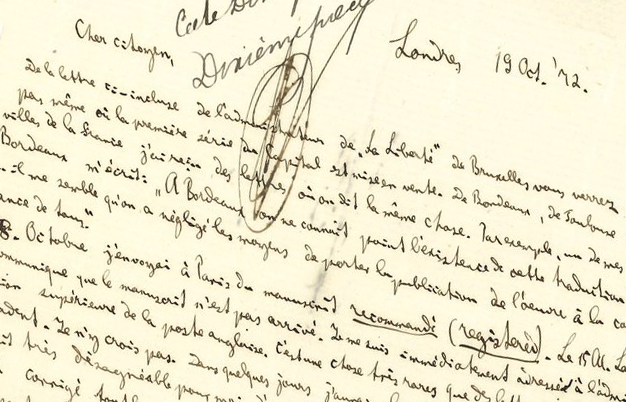 Cote D
Dixième pièce
Cher citoyen,
Londres 19 Oct. '72.
De la lettre ci-incluse de l'administrateur de „La Liberté" de Bruxelles vous verrez
pas même où la première série du Capital est mise en vente. De Bordeaux, de Toulouse
villes de la France j'ai reçu des lettres, où on dit la même chose. Par exemple, un de mes
Bordeaux m'écrit: „A Bordeaux on ne connaît point l'existence de cette traduction
il me semble qu'on a négligé les moyens de porter la publication de l'oeuvre à la co
ance de tous."
8. Octobre j'envoyai à Paris du manuscrit recommandé (registered). Le 15 
mmunique que le manuscrit n'est pas arrivé. Je me suis immédiatement adressé à l'admi
tion supérieure de la poste anglaise, c'est une chose très rare que des
dent. Je n'y crois pas. Dans quelques jours j'aurai
it très désagréable pour moi
corrigé